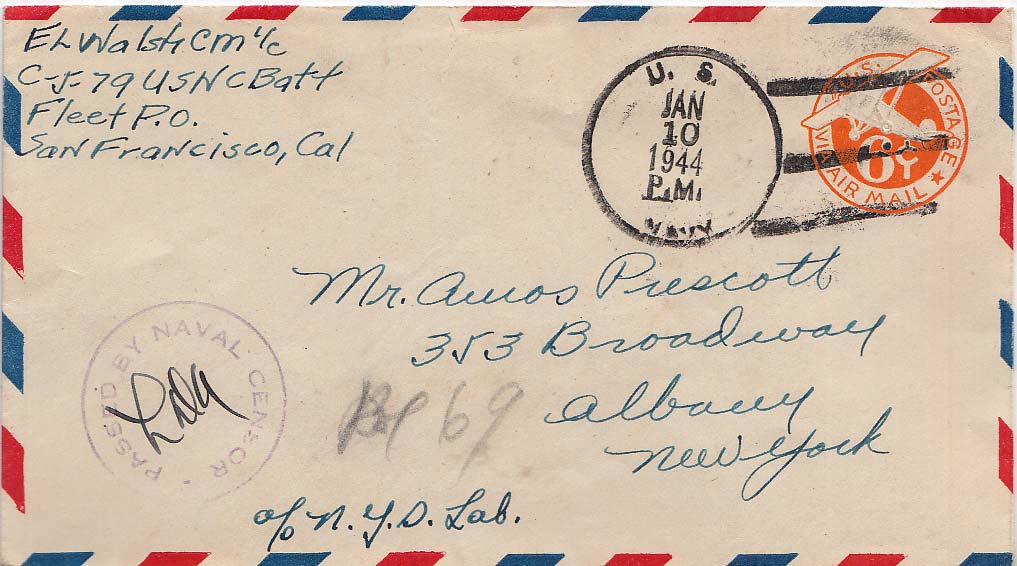 EL Walsh CM 1/c
C-5-79 USNC Batt
Fleet P.O.
San Francisco, Cal
U. S.
JAN
10
1944
P.M.
NAVY
U.S. POSTAGE
6¢
VIA AIR MAIL
Mr. Amos Prescott
353 Broadway
Albany
New York
PASSED BY NAVAL CENSOR
69
c/o N.Y.D. Lab.